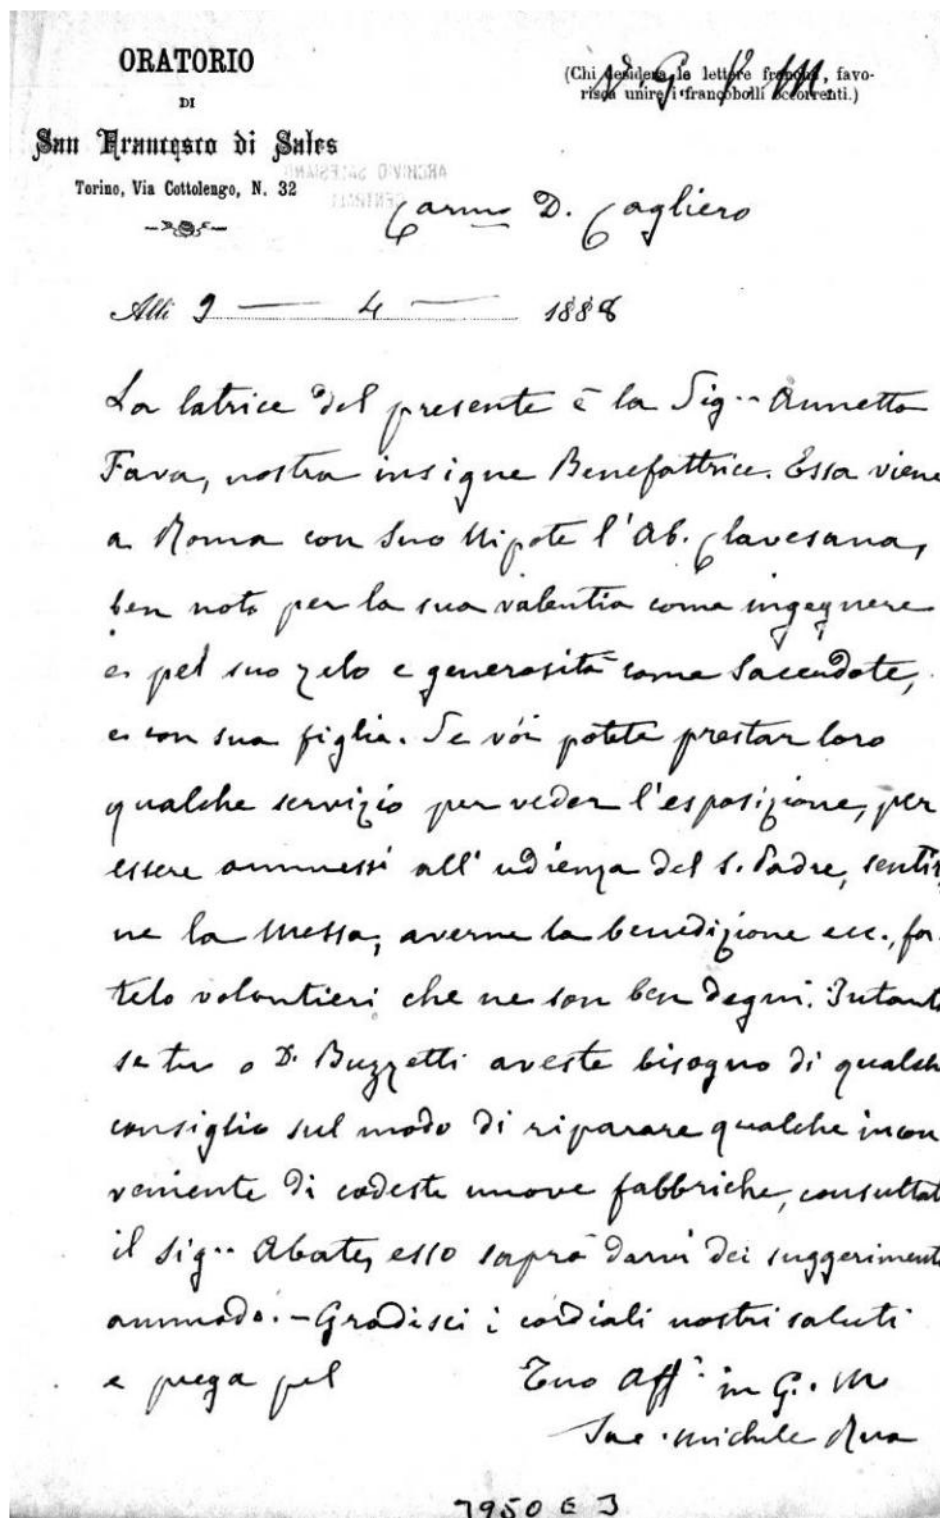 ORATORIO
DI
San Francesco di Sales
Torino, Via Cottolengo, N. 32
(Chi desidera le lettere franche, favo-
risca unire i francobolli occorrenti.)
V. G. M.
ARCHIVIO SALESIANO
CENTRALE
Carmo D. Cagliero
Alli 9 — 4 — 1888
La latrice del presente è la Sig.ra Annetta
Fava, nostra insigne Benefattrice. Essa viene
a Roma con suo Nipote l'Ab. Clavesana,
ben noto per la sua valentia come ingegnere
e pel suo zelo e generosità come Sacerdote,
e con sua figlia. Se voi potete prestar loro
qualche servizio per veder l'esposizione, per
essere ammessi all'udienza del S. Padre, sentir
ne la Messa, averne la benedizione ecc., fa-
telo volontieri che ne son ben degni. Intanto
se tu o D. Buzzetti aveste bisogno di qualch
consiglio sul modo di riparare qualche incon
veniente di codeste nuove fabbriche, consultat
il Sig.r Abate, esso saprà darvi dei suggerimenti
ammodo. - Gradisci i cordiali nostri saluti
e prega pel Tuo Aff. in G. M
Sac. Michele Rua